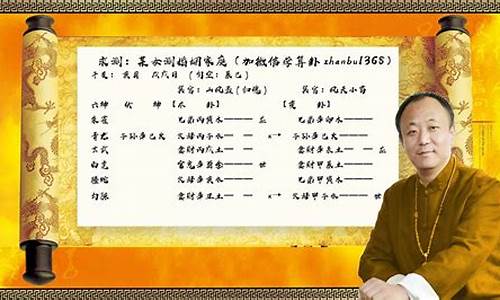 求测：某女测婚姻家庭（加微信学算卦 zhanbul365）
干支：寅月 戊戌日 （旬空：辰巳）
巽宫：山风蛊(归魂) 巽宫：风天小畜
六神 伏神 【本 卦】 【变 卦】
朱雀 兄弟丙寅木——— 应 兄弟辛卯木———
青龙 子孙辛巳火 父母丙子水— — ×→ 子孙辛巳火———
玄武 妻财丙戌土— — 妻财辛未土— — 应
白虎 官鬼辛酉金——— 世 妻财甲辰土———
螣蛇 父母辛亥水——— 兄弟甲寅木———
勾陈 妻财辛丑土— — ×→ 父母甲子水——— 世